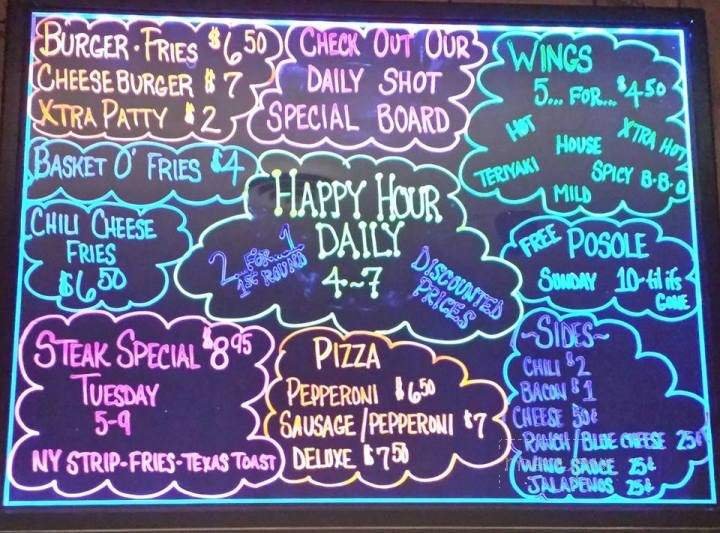 BURGER·FRIES $6 50
CHEESEBURGER $7
XTRA PATTY $2
CHECK OUT OUR
DAILY SHOT
SPECIAL BOARD
WINGS
5... FOR... $4.50
HOT
HOUSE
XTRA HOT
TERIYAKI
SPICY B·B·Q
MILD
BASKET O' FRIES $4
HAPPY HOUR
DAILY
4-7
2...FOR...1
1ST ROUND
DISCOUNTED
PRICES
CHILI CHEESE
FRIES
$6 50
FREE POSOLE
SUNDAY 10-til its
GONE
STEAK SPECIAL $8 95
TUESDAY
5-9
NY STRIP-FRIES-TEXAS TOAST
PIZZA
PEPPERONI $6 50
SAUSAGE/PEPPERONI $7
DELUXE $7 50
~SIDES~
CHILI $2
BACON $1
CHEESE 50¢
RANCH/BLUE CHEESE 25¢
WING SAUCE 25¢
JALAPENOS 25¢